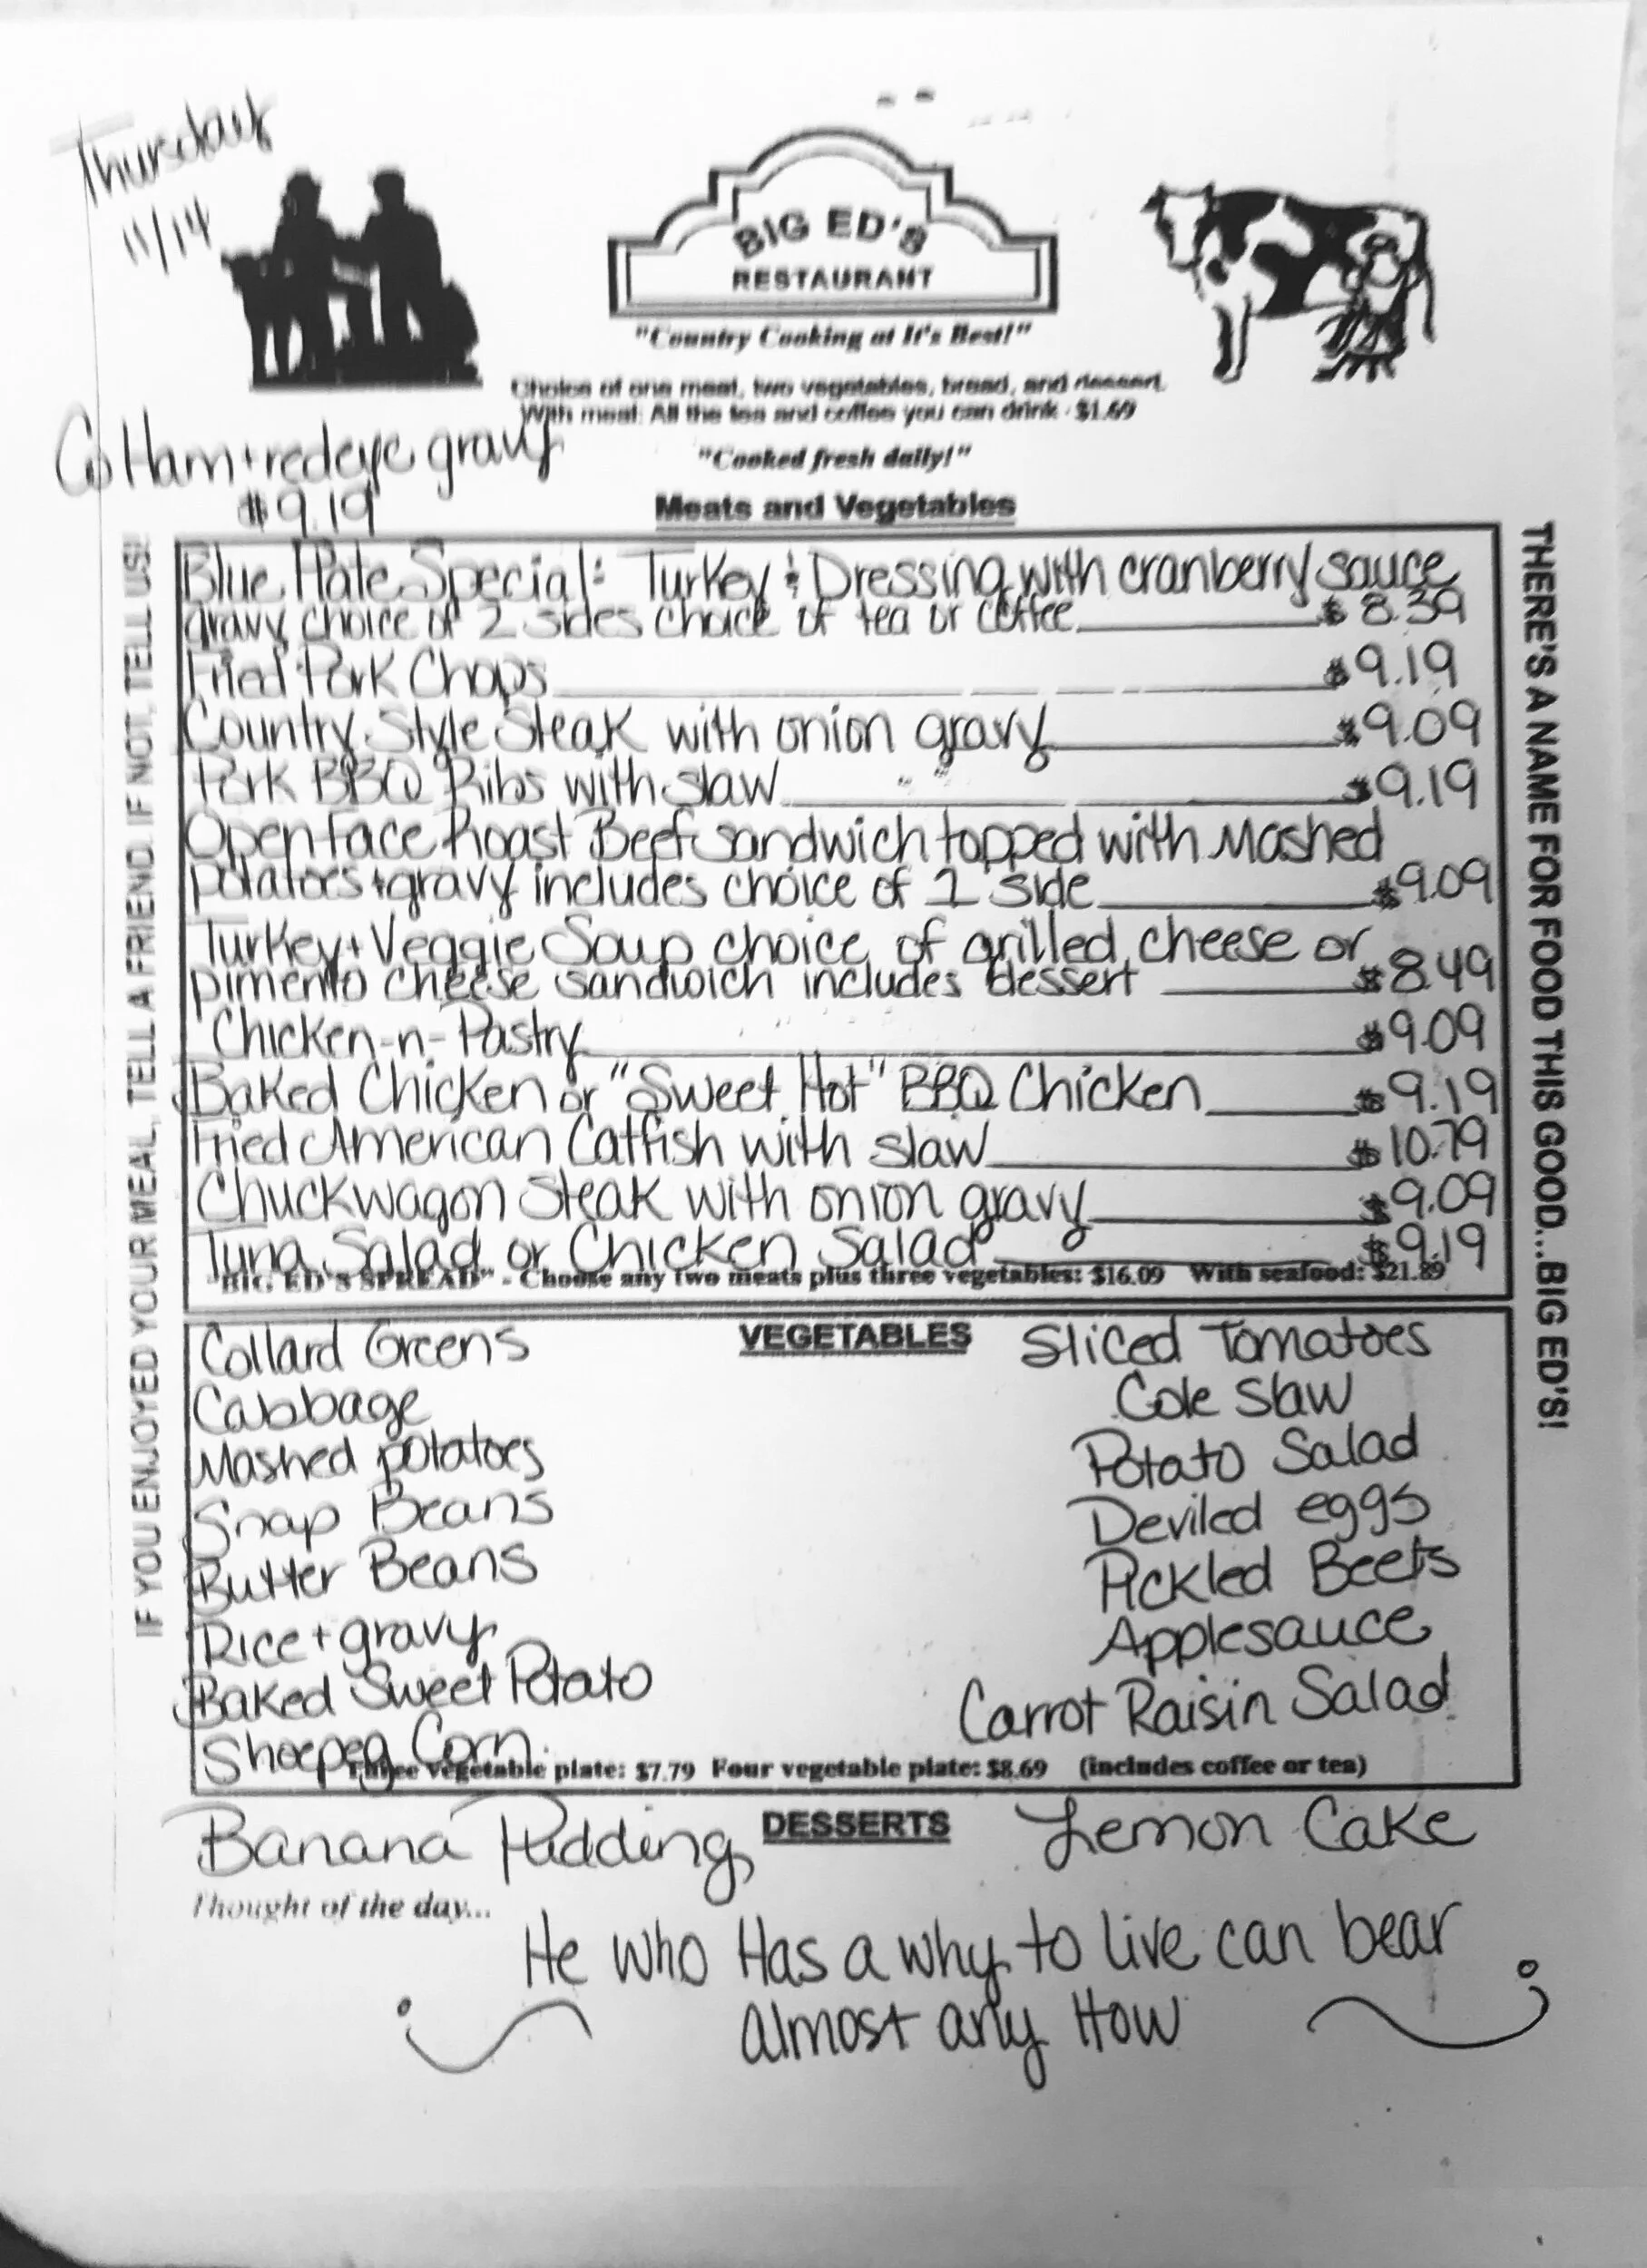 Thursday
11/14
BIG ED'S
RESTAURANT
"Country Cooking at It's Best!"
Choice of one meat, two vegetables, bread, and dessert.
With meal: All the tea and coffee you can drink - $1.69
"Cooked fresh daily!"
Co Ham + redeye gravy
$9.19
Meats and Vegetables
Blue Plate Special: Turkey & Dressing with cranberry sauce
gravy choice of 2 sides choice of tea or coffee $8.39
Fried Pork Chops $9.19
Country Style Steak with onion gravy $9.09
Pork BBQ Ribs with slaw $9.19
Open Face Roast Beef sandwich topped with Mashed
potatoes + gravy includes choice of 1 side $9.09
Turkey + Veggie Soup choice of grilled cheese or
pimento cheese sandwich includes dessert $8.49
Chicken-n-Pastry $9.09
Baked Chicken or "Sweet Hot" BBQ Chicken $9.19
Fried American Catfish with slaw $10.79
Chuckwagon Steak with onion gravy $9.09
Tuna Salad or Chicken Salad $9.19
"BIG ED'S SPREAD" - Choose any two meats plus three vegetables: $16.09 With seafood: $21.89
VEGETABLES
Collard Greens
Cabbage
Mashed potatoes
Snap Beans
Butter Beans
Rice + gravy
Baked Sweet Potato
Shoepeg Corn
Sliced Tomatoes
Cole Slaw
Potato Salad
Deviled eggs
Pickled Beets
Applesauce
Carrot Raisin Salad
Three vegetable plate: $7.79 Four vegetable plate: $8.69 (includes coffee or tea)
DESSERTS
Banana Pudding
Lemon Cake
Thought of the day...
He who Has a why to live can bear
almost any How
IF YOU ENJOYED YOUR MEAL, TELL A FRIEND. IF NOT, TELL US!
THERE'S A NAME FOR FOOD THIS GOOD...BIG ED'S!